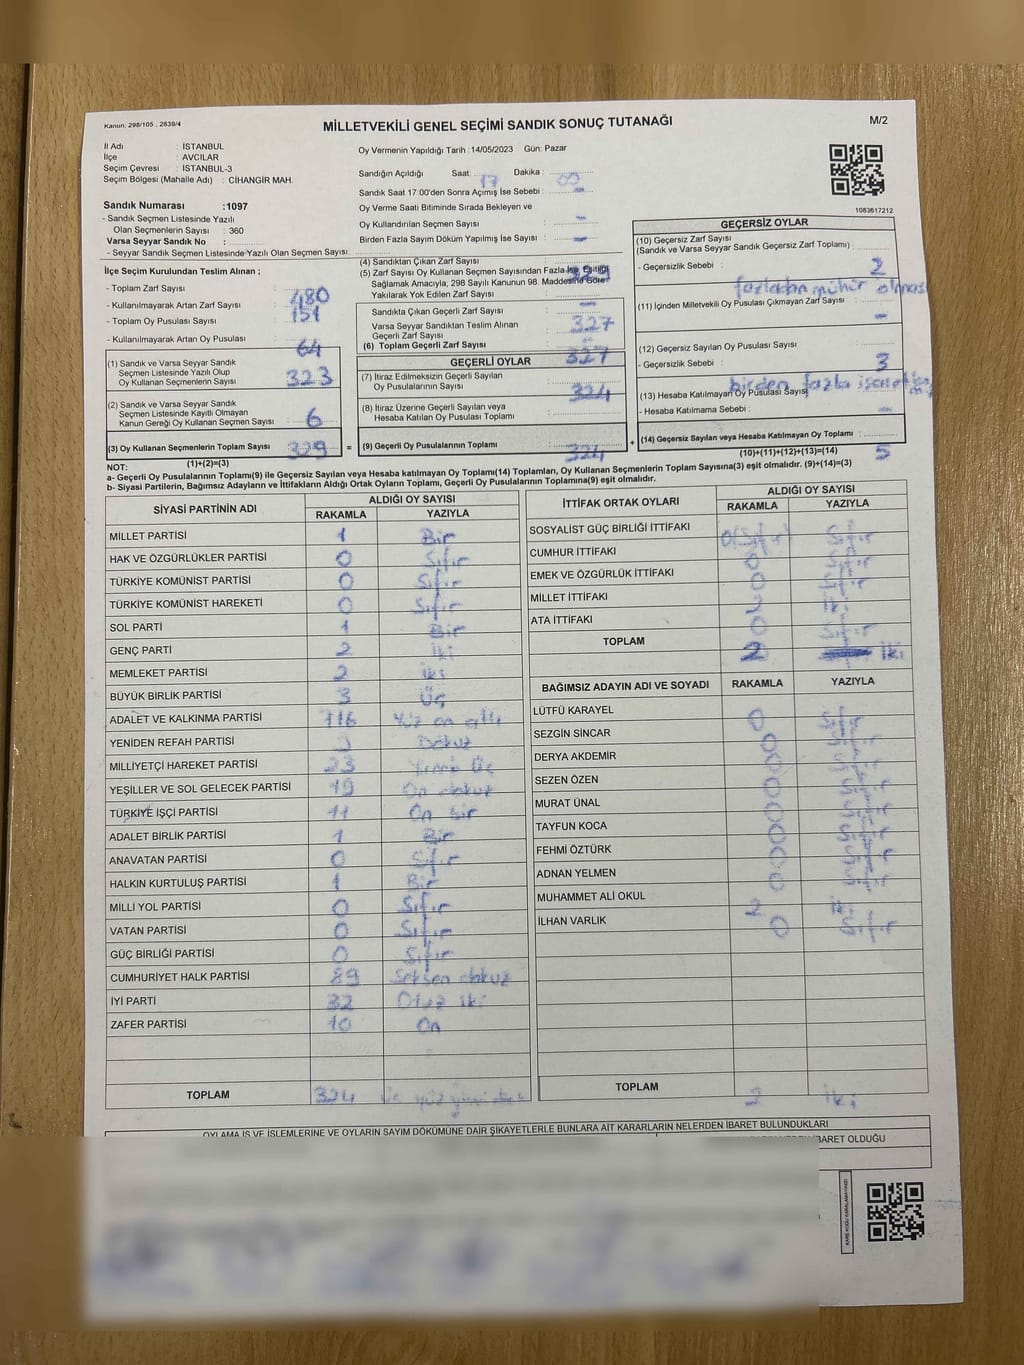 Kanun: 298/105 , 2839/4
MİLLETVEKİLİ GENEL SEÇİMİ SANDIK SONUÇ TUTANAĞI
M/2
İl Adı : İSTANBUL
İlçe : AVCILAR
Seçim Çevresi : İSTANBUL-3
Seçim Bölgesi (Mahalle Adı) : CİHANGİR MAH.
Oy Vermenin Yapıldığı Tarih : 14/05/2023 Gün: Pazar
Sandığın Açıldığı Saat 17 Dakika :
Sandık Saat 17:00'den Sonra Açımış İse Sebebi : -
Oy Verme Saati Bitiminde Sırada Bekleyen ve
Oy Kullandırılan Seçmen Sayısı : -
Birden Fazla Sayım Döküm Yapılmış İse Sayısı : -
Sandık Numarası :1097
- Sandık Seçmen Listesinde Yazılı
Olan Seçmenlerin Sayısı : 360
Varsa Seyyar Sandık No :
- Seyyar Sandık Seçmen Listesinde Yazılı Olan Seçmen Sayısı :
1083617212
İlçe Seçim Kurulundan Teslim Alınan ;
- Toplam Zarf Sayısı : 480
- Kullanılmayarak Artan Zarf Sayısı : 151
- Toplam Oy Pusulası Sayısı :
- Kullanılmayarak Artan Oy Pusulası : 64
(1) Sandık ve Varsa Seyyar Sandık
Seçmen Listesinde Yazılı Olup
Oy Kullanan Seçmenlerin Sayısı : 323
(2) Sandık ve Varsa Seyyar Sandık
Seçmen Listesinde Kayıtlı Olmayan
Kanun Gereği Oy Kullanan Seçmen Sayısı : 6
(3) Oy Kullanan Seçmenlerin Toplam Sayısı : 329
(1)+(2)=(3)
(4) Sandıktan Çıkan Zarf Sayısı : 329
(5) Zarf Sayısı Oy Kullanan Seçmen Sayısından Fazla İse, Eşitliği
Sağlamak Amacıyla, 298 Sayılı Kanunun 98. Maddesine Göre
Yakılarak Yok Edilen Zarf Sayısı : -
Sandıkta Çıkan Geçerli Zarf Sayısı : 327
Varsa Seyyar Sandıktan Teslim Alınan
Geçerli Zarf Sayısı : -
(6) Toplam Geçerli Zarf Sayısı : 327
GEÇERLİ OYLAR
(7) İtiraz Edilmeksizin Geçerli Sayılan
Oy Pusulalarının Sayısı : 324
(8) İtiraz Üzerine Geçerli Sayılan veya
Hesaba Katılan Oy Pusulası Toplamı :
= (9) Geçerli Oy Pusulalarının Toplamı : 324
GEÇERSİZ OYLAR
(10) Geçersiz Zarf Sayısı
(Sandık ve Varsa Seyyar Sandık Geçersiz Zarf Toplamı) : 2
- Geçersizlik Sebebi : fazladan mühür olması
(11) İçinden Milletvekili Oy Pusulası Çıkmayan Zarf Sayısı : -
(12) Geçersiz Sayılan Oy Pusulası Sayısı : 3
- Geçersizlik Sebebi : birden fazla
(13) Hesaba Katılmayan Oy Pusulası Sayısı : -
- Hesaba Katılmama Sebebi :
+ (14) Geçersiz Sayılan veya Hesaba Katılmayan Oy Toplamı : 5
(10)+(11)+(12)+(13)=(14)
NOT:
a- Geçerli Oy Pusulalarının Toplamı(9) ile Geçersiz Sayılan veya Hesaba katılmayan Oy Toplamı(14) Toplamları, Oy Kullanan Seçmenlerin Toplam Sayısına(3) eşit olmalıdır. (9)+(14)=(3)
b- Siyasi Partilerin, Bağımsız Adayların ve İttifakların Aldığı Ortak Oyların Toplamı, Geçerli Oy Pusulalarının Toplamına(9) eşit olmalıdır.
SİYASİ PARTİNİN ADI ALDIĞI OY SAYISI
RAKAMLA YAZIYLA
MİLLET PARTİSİ 1 Bir
HAK VE ÖZGÜRLÜKLER PARTİSİ 0 Sıfır
TÜRKİYE KOMÜNİST PARTİSİ 0 Sıfır
TÜRKİYE KOMÜNİST HAREKETİ 0 Sıfır
SOL PARTİ 1 Bir
GENÇ PARTİ 2 iki
MEMLEKET PARTİSİ 2 iki
BÜYÜK BİRLİK PARTİSİ 3 Üç
ADALET VE KALKINMA PARTİSİ 116 Yüz on altı
YENİDEN REFAH PARTİSİ 9 Dokuz
MİLLİYETÇİ HAREKET PARTİSİ 23 Yirmi Üç
YEŞİLLER VE SOL GELECEK PARTİSİ 19 On dokuz
TÜRKİYE İŞÇİ PARTİSİ 11 On bir
ADALET BİRLİK PARTİSİ 1 Bir
ANAVATAN PARTİSİ 0 Sıfır
HALKIN KURTULUŞ PARTİSİ 1 Bir
MİLLİ YOL PARTİSİ 0 Sıfır
VATAN PARTİSİ 0 Sıfır
GÜÇ BİRLİĞİ PARTİSİ 0 Sıfır
CUMHURİYET HALK PARTİSİ 89 Seksen dokuz
İYİ PARTİ 32 Otuz iki
ZAFER PARTİSİ 10 On
TOPLAM 324 Üç yüz yirmi dört
İTTİFAK ORTAK OYLARI ALDIĞI OY SAYISI
RAKAMLA YAZIYLA
SOSYALİST GÜÇ BİRLİĞİ İTTİFAKI 0(Sıfır) Sıfır
CUMHUR İTTİFAKI 0 Sıfır
EMEK VE ÖZGÜRLÜK İTTİFAKI 0 Sıfır
MİLLET İTTİFAKI 2 iki
ATA İTTİFAKI 0 Sıfır
TOPLAM 2 İki
BAĞIMSIZ ADAYIN ADI VE SOYADI RAKAMLA YAZIYLA
LÜTFÜ KARAYEL 0 Sıfır
SEZGİN SİNCAR 0 Sıfır
DERYA AKDEMİR 0 Sıfır
SEZEN ÖZEN 0 Sıfır
MURAT ÜNAL 0 Sıfır
TAYFUN KOCA 0 Sıfır
FEHMİ ÖZTÜRK 0 Sıfır
ADNAN YELMEN 0 Sıfır
MUHAMMET ALİ OKUL 2 iki
İLHAN VARLIK 0 Sıfır
TOPLAM 2 İki
OYLAMA İŞ VE İŞLEMLERİNE VE OYLARIN SAYIM DÖKÜMÜNE DAİR ŞİKAYETLERLE BUNLARA AİT KARARLARIN NELERDEN İBARET BULUNDUKLARI
İBARET OLDUĞU